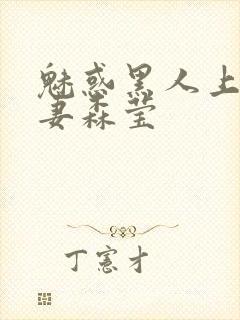 魅惑黑人上
妻森莹
丁宪才